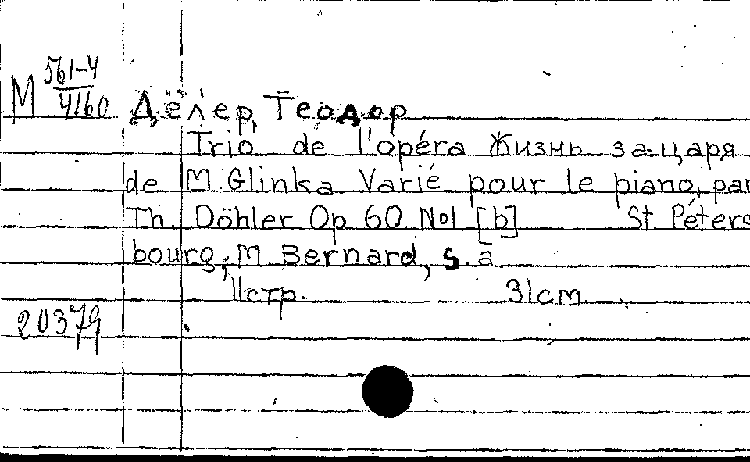 М 561-4/4160
Дёлер, Теодор
Trio de l'opéra Жизнь за царя
de M. Glinka Varié pour le piano, par
Th. Döhler Op 60 No1 [b] St Péters
bourg, M. Bernard, s. a
11стр. 31см
20379